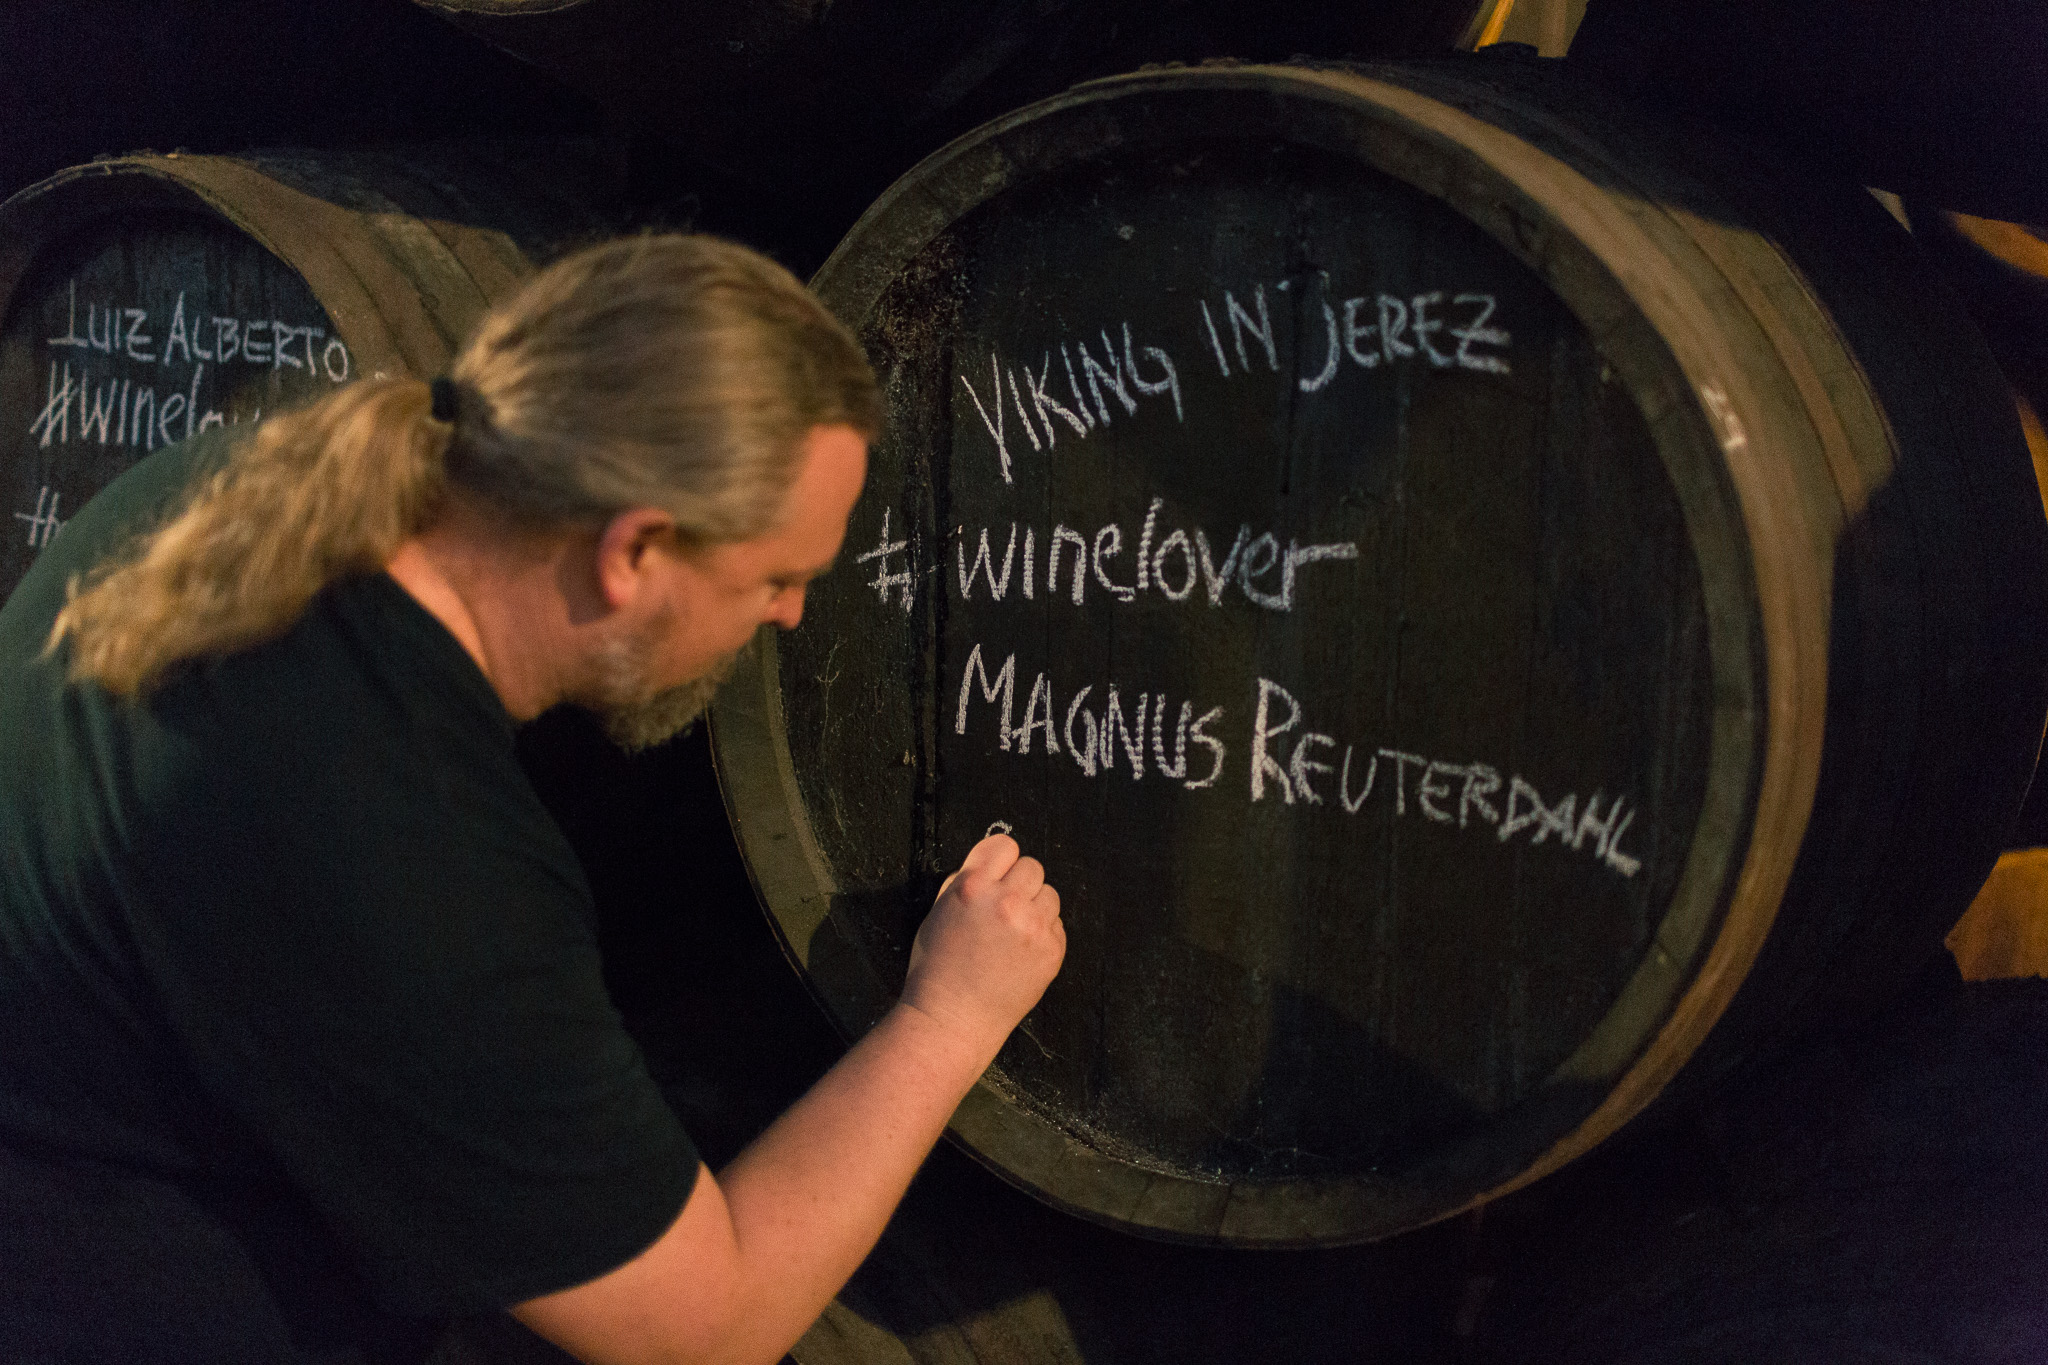 LUIZ ALBERTO
VIKING IN JEREZ
#winelover
MAGNUS REUTERDAHL